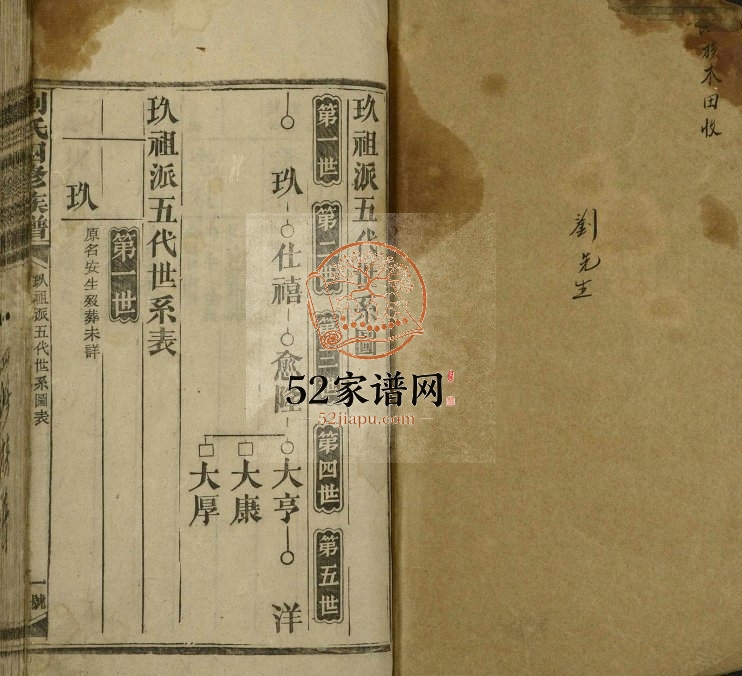 劉先生
玖祖派五代世系圖
第一世
第二世
第三世
第四世
第五世
玖
仕禧
愈陞
大亨
洋
大康
大厚
玖祖派五代世系表
第一世
玖
原名安生歿葬未詳
劉氏四修族譜
玖祖派五代世系圖表
一號
52家谱网
52jiapu.com